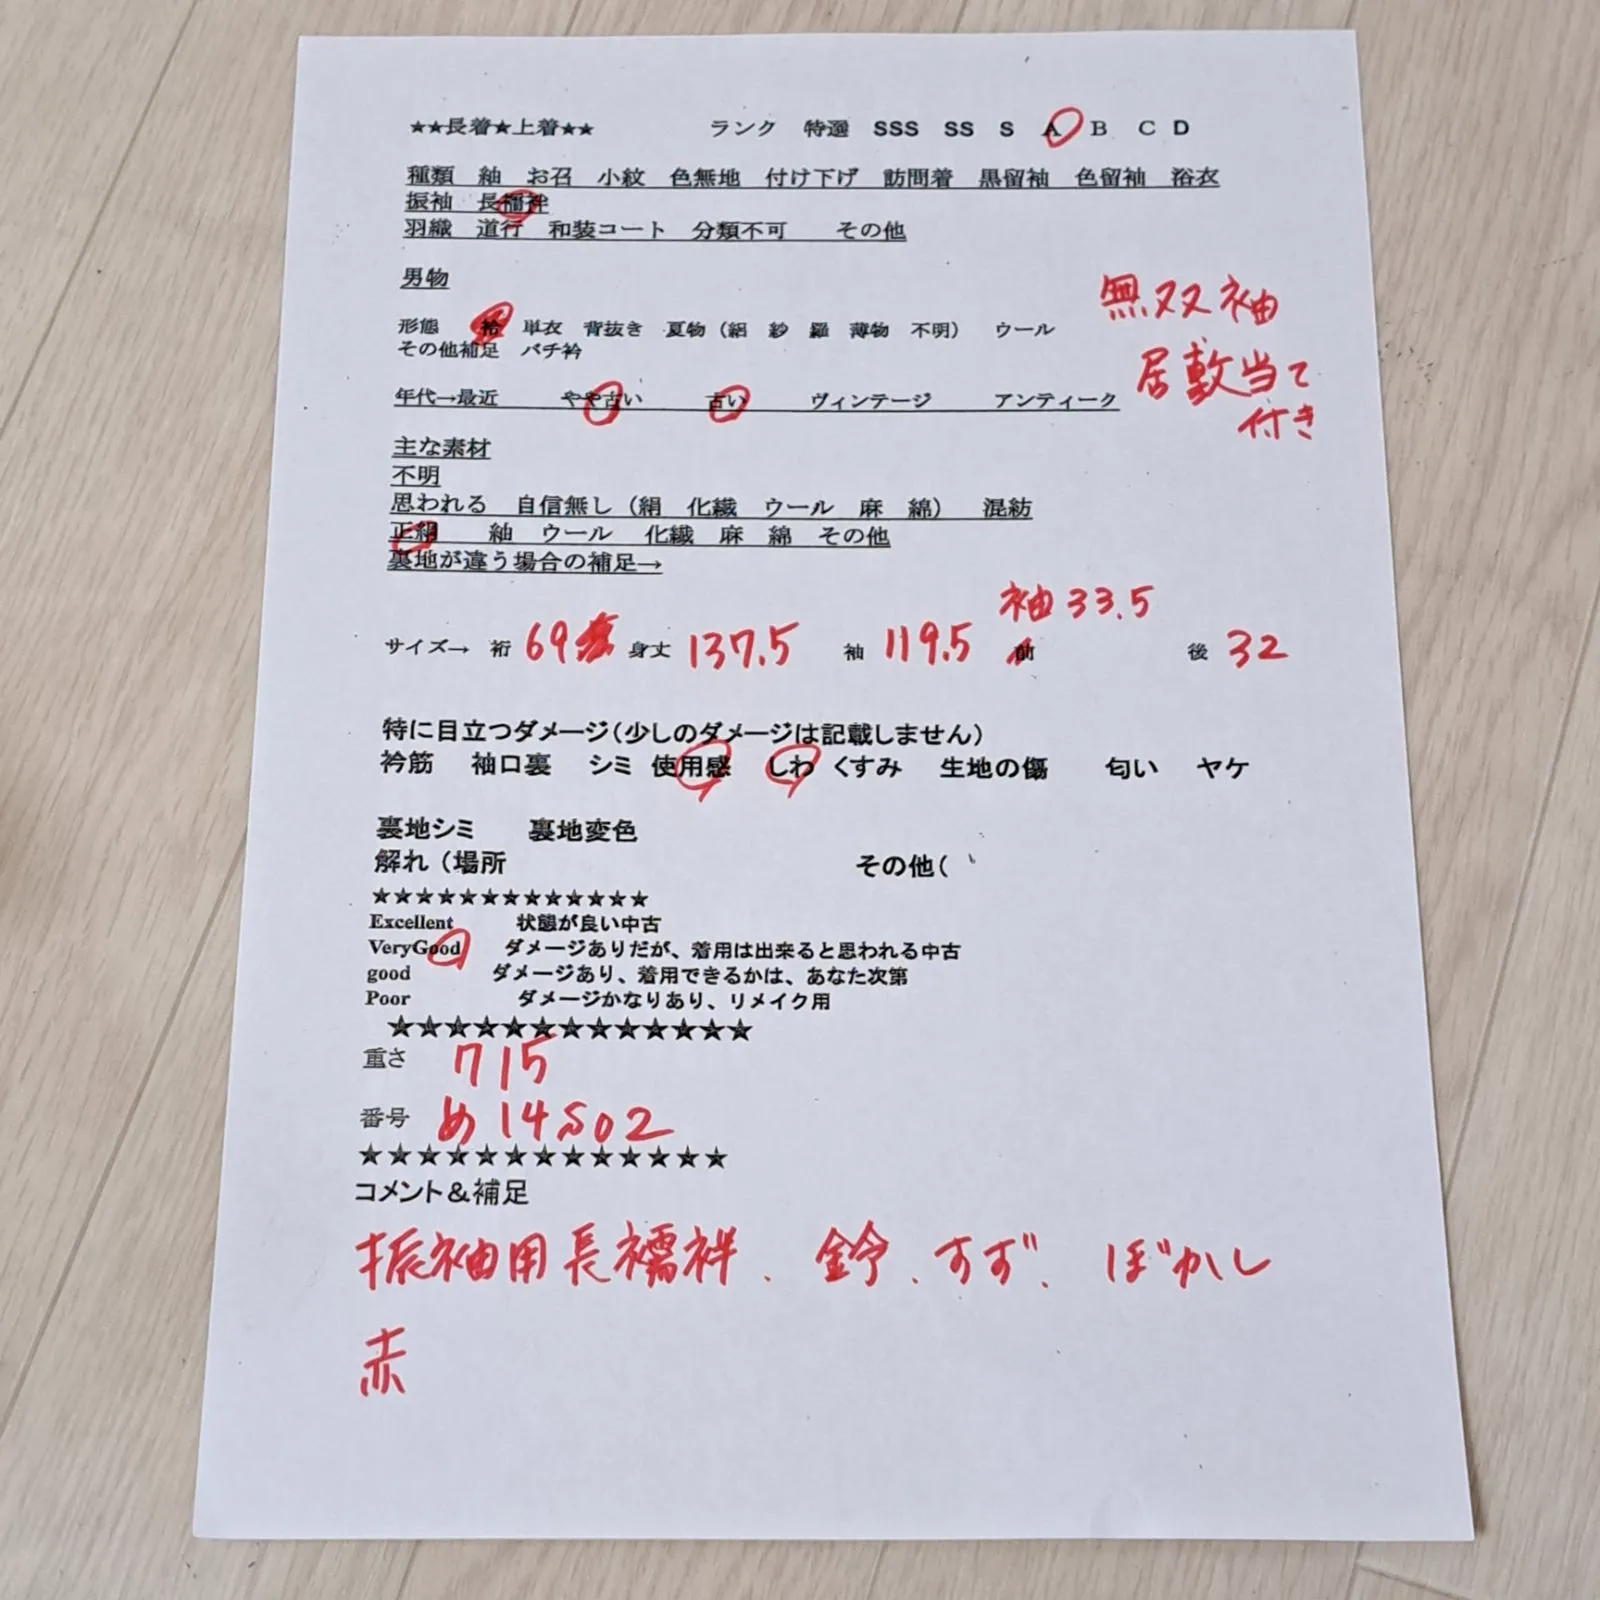 ★★長着★上着★★　ランク　特選　SSS　SS　S　A　B　C　D
種類　紬　お召　小紋　色無地　付け下げ　訪問着　黒留袖　色留袖　浴衣
振袖　長襦袢
羽織　道行　和装コート　分類不可　その他
男物
無双袖
形態　袷　単衣　背抜き　夏物（絽　紗　羅　薄物　不明）　ウール
その他補足　バチ衿
居敷当て
付き
年代→最近　やや古い　古い　ヴィンテージ　アンティーク
主な素材
不明
思われる　自信無し（絹　化繊　ウール　麻　綿）　混紡
正絹　紬　ウール　化繊　麻　綿　その他
裏地が違う場合の補足→
袖33.5
サイズ→　裄　69　身丈　137.5　袖　119.5　前　後　32
特に目立つダメージ（少しのダメージは記載しません）
衿筋　袖口裏　シミ　使用感　しわ　くすみ　生地の傷　匂い　ヤケ
裏地シミ　裏地変色
解れ（場所　その他（
★★★★★★★★★★★★★
Excellent　状態が良い中古
VeryGood　ダメージありだが、着用は出来ると思われる中古
good　ダメージあり、着用できるかは、あなた次第
Poor　ダメージかなりあり、リメイク用
★★★★★★★★★★★★★
重さ　715
番号　め14S02
★★★★★★★★★★★★★
コメント＆補足
振袖用長襦袢、鈴、すず、ぼかし
赤